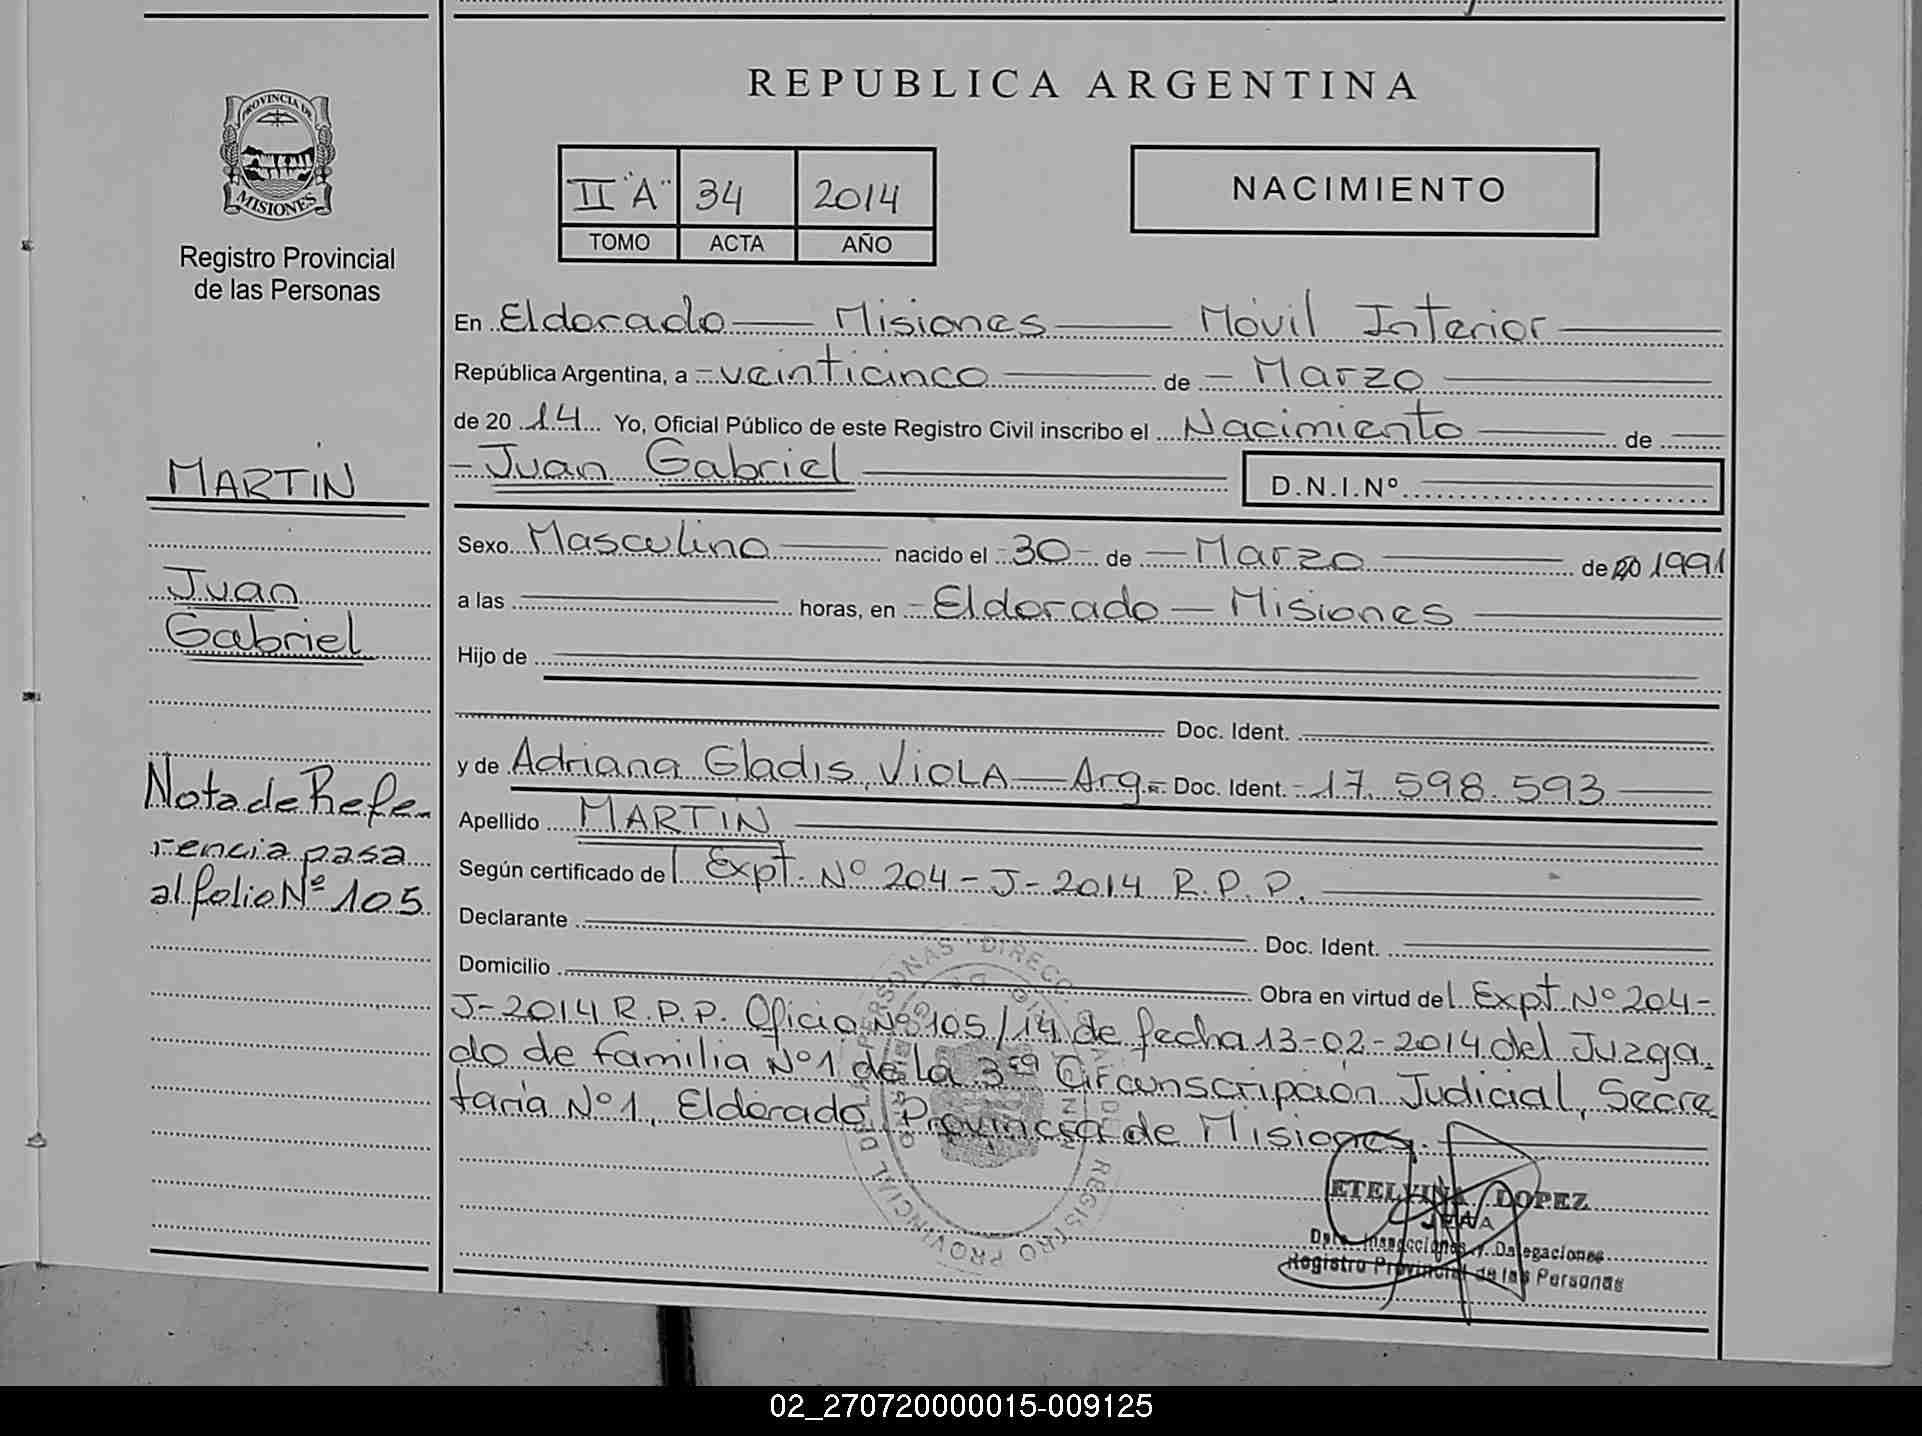 REPUBLICA ARGENTINA
PROVINCIA DE
MISIONES
Registro Provincial
de las Personas
II "A" 34 2014
TOMO ACTA AÑO
NACIMIENTO
En Eldorado — Misiones — Móvil Interior —
República Argentina, a - veinticinco — de - Marzo —
de 20 14 Yo, Oficial Público de este Registro Civil inscribo el Nacimiento — de —
- Juan Gabriel —
D.N.I.Nº —
Sexo Masculino — nacido el - 30 - de — Marzo — de 20 1991
a las — horas, en - Eldorado — Misiones —
Hijo de —
Doc. Ident. —
y de Adriana Gladis VIOLA — Arg.- Doc. Ident. - 17.598.593 —
Apellido MARTIN —
Según certificado del Expt. Nº 204-J-2014 R.P.P. —
Declarante — Doc. Ident. —
Domicilio — Obra en virtud del Expt Nº 204-
J-2014 R.P.P. Oficio Nº 105/14 de fecha 13-02-2014 del Juzga
do de familia Nº 1 de la 3ra Circunscripción Judicial, Secre
taria Nº 1, Eldorado, Provincia de Misiones. —
MARTIN
Juan
Gabriel
Nota de Refe-
rencia pasa
al folio Nº 105
REGISTRO PROVINCIAL
ETELVINA LOPEZ
JEFA
Dpto. Inspecciones y Delegaciones
Registro Provincial de las Personas
02_270720000015-009125